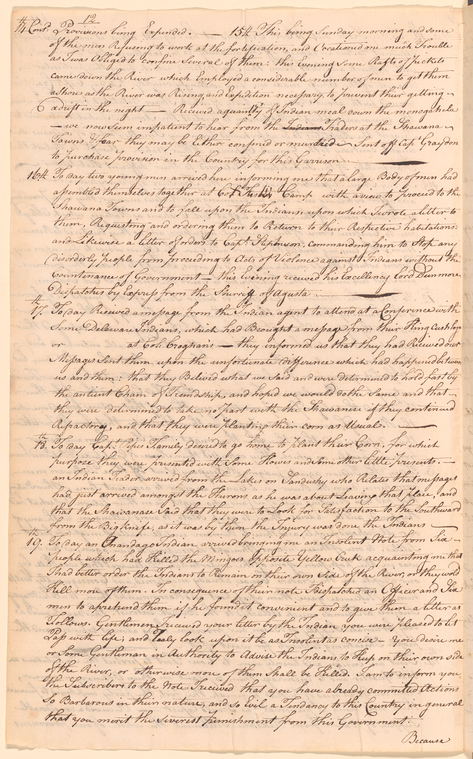 12
14 Cont.d Provisions being Expended. — 15th This being Sunday morning and some
of the men Refusing to work at the fortification, and Occationed me much Trouble
as I was Obliged to Confine Several of them: this evening Some Rafts of Pickets
came down the River which Employed a considerable number of men to get them
a Shore as the River was Rising and Expidition necessary, to prevent their getting
adrift in the night — Recived a quantity of Indian meal down the monagahela
— we now Seem impatient to hear from the Traders at the Shawana
Towns & fear they may be Either confined or murdered — Sent off Capt. Graydon
to purchase provision in the Country for this Garrison
16th To day two young men arrived here informing me that a large Body of men had
assembled themselves together at Camp with a view to proceed to the
Shawana Towns and to fall upon the Indians, upon which I wrote a letter to
them, Requesting and ordering them to Return to their Respective habitations
and Likewise a letter of orders to Capt. Stephenson, commanding him to Stop any
disorderly people from proceeding to Acts of Violence against Indians without the
Countenance of Government — this Evening recived his Excellency Lord Dunmore
Dispatches by Express from the Sherriff of Agusta
17. To day Recived a message from the Indian agent to attend at a Conference with
Some Delaware Indians, which had Brought a message from their King Cushcap
or at Col. Croghans — they informed us that they had Recived our
Messages Sent them upon the unfortunate difference which had happened between
us and them: that they Belived what we Said and were determined to hold fast by
the antient Chain of Freindship, and hoped we would do the Same: and that
they were determined to take no part with the Shawanese if they continued
Refractory, and that they were planting their corn as Usual
18. To day Capt. Pipes Family decided to go home to plant their Corn, for which
purpose they were presented with Some Howes and Some other little presents. —
an Indian Trader arrived from the Lakes on Sandusky who Relates that messages
had just arrived amongst the Hurons as he was about Leaving that place, and
that the Shawanase Said that they were to Look for Satisfaction to the Southward
from the Big Knife, as it was by them the Injury was done the Indians —
19. To day an Onandaga Indian arrived bringing me an Insolent Note from Six
people which had Killed the Mingoes opposite Yellow Creek acquainting me that
I had better order the Indians to Remain on their own Side of the River, or they would
Kill more of them: In consequence of their note I dispatched an Officer and Six
men to aprehend them if he found it convenient and to give them a letter as
follows. Gentlemen I recived your letter by the Indian you were pleased to let
Pass with Life; and truly look upon it be as Insolent as concise — You desire me
or Some Gentleman in Authority to Advise the Indians to Keep on their own side
of the River, or otherwise more of them Shall be Killed. I am to inform you
the Subscribers to the Note I recived that you have already committed Actions
So Barbarous in their nature, and so Evil a Tendancy to this Country in general
that you merit the Siverest punishment from this Government:
Because